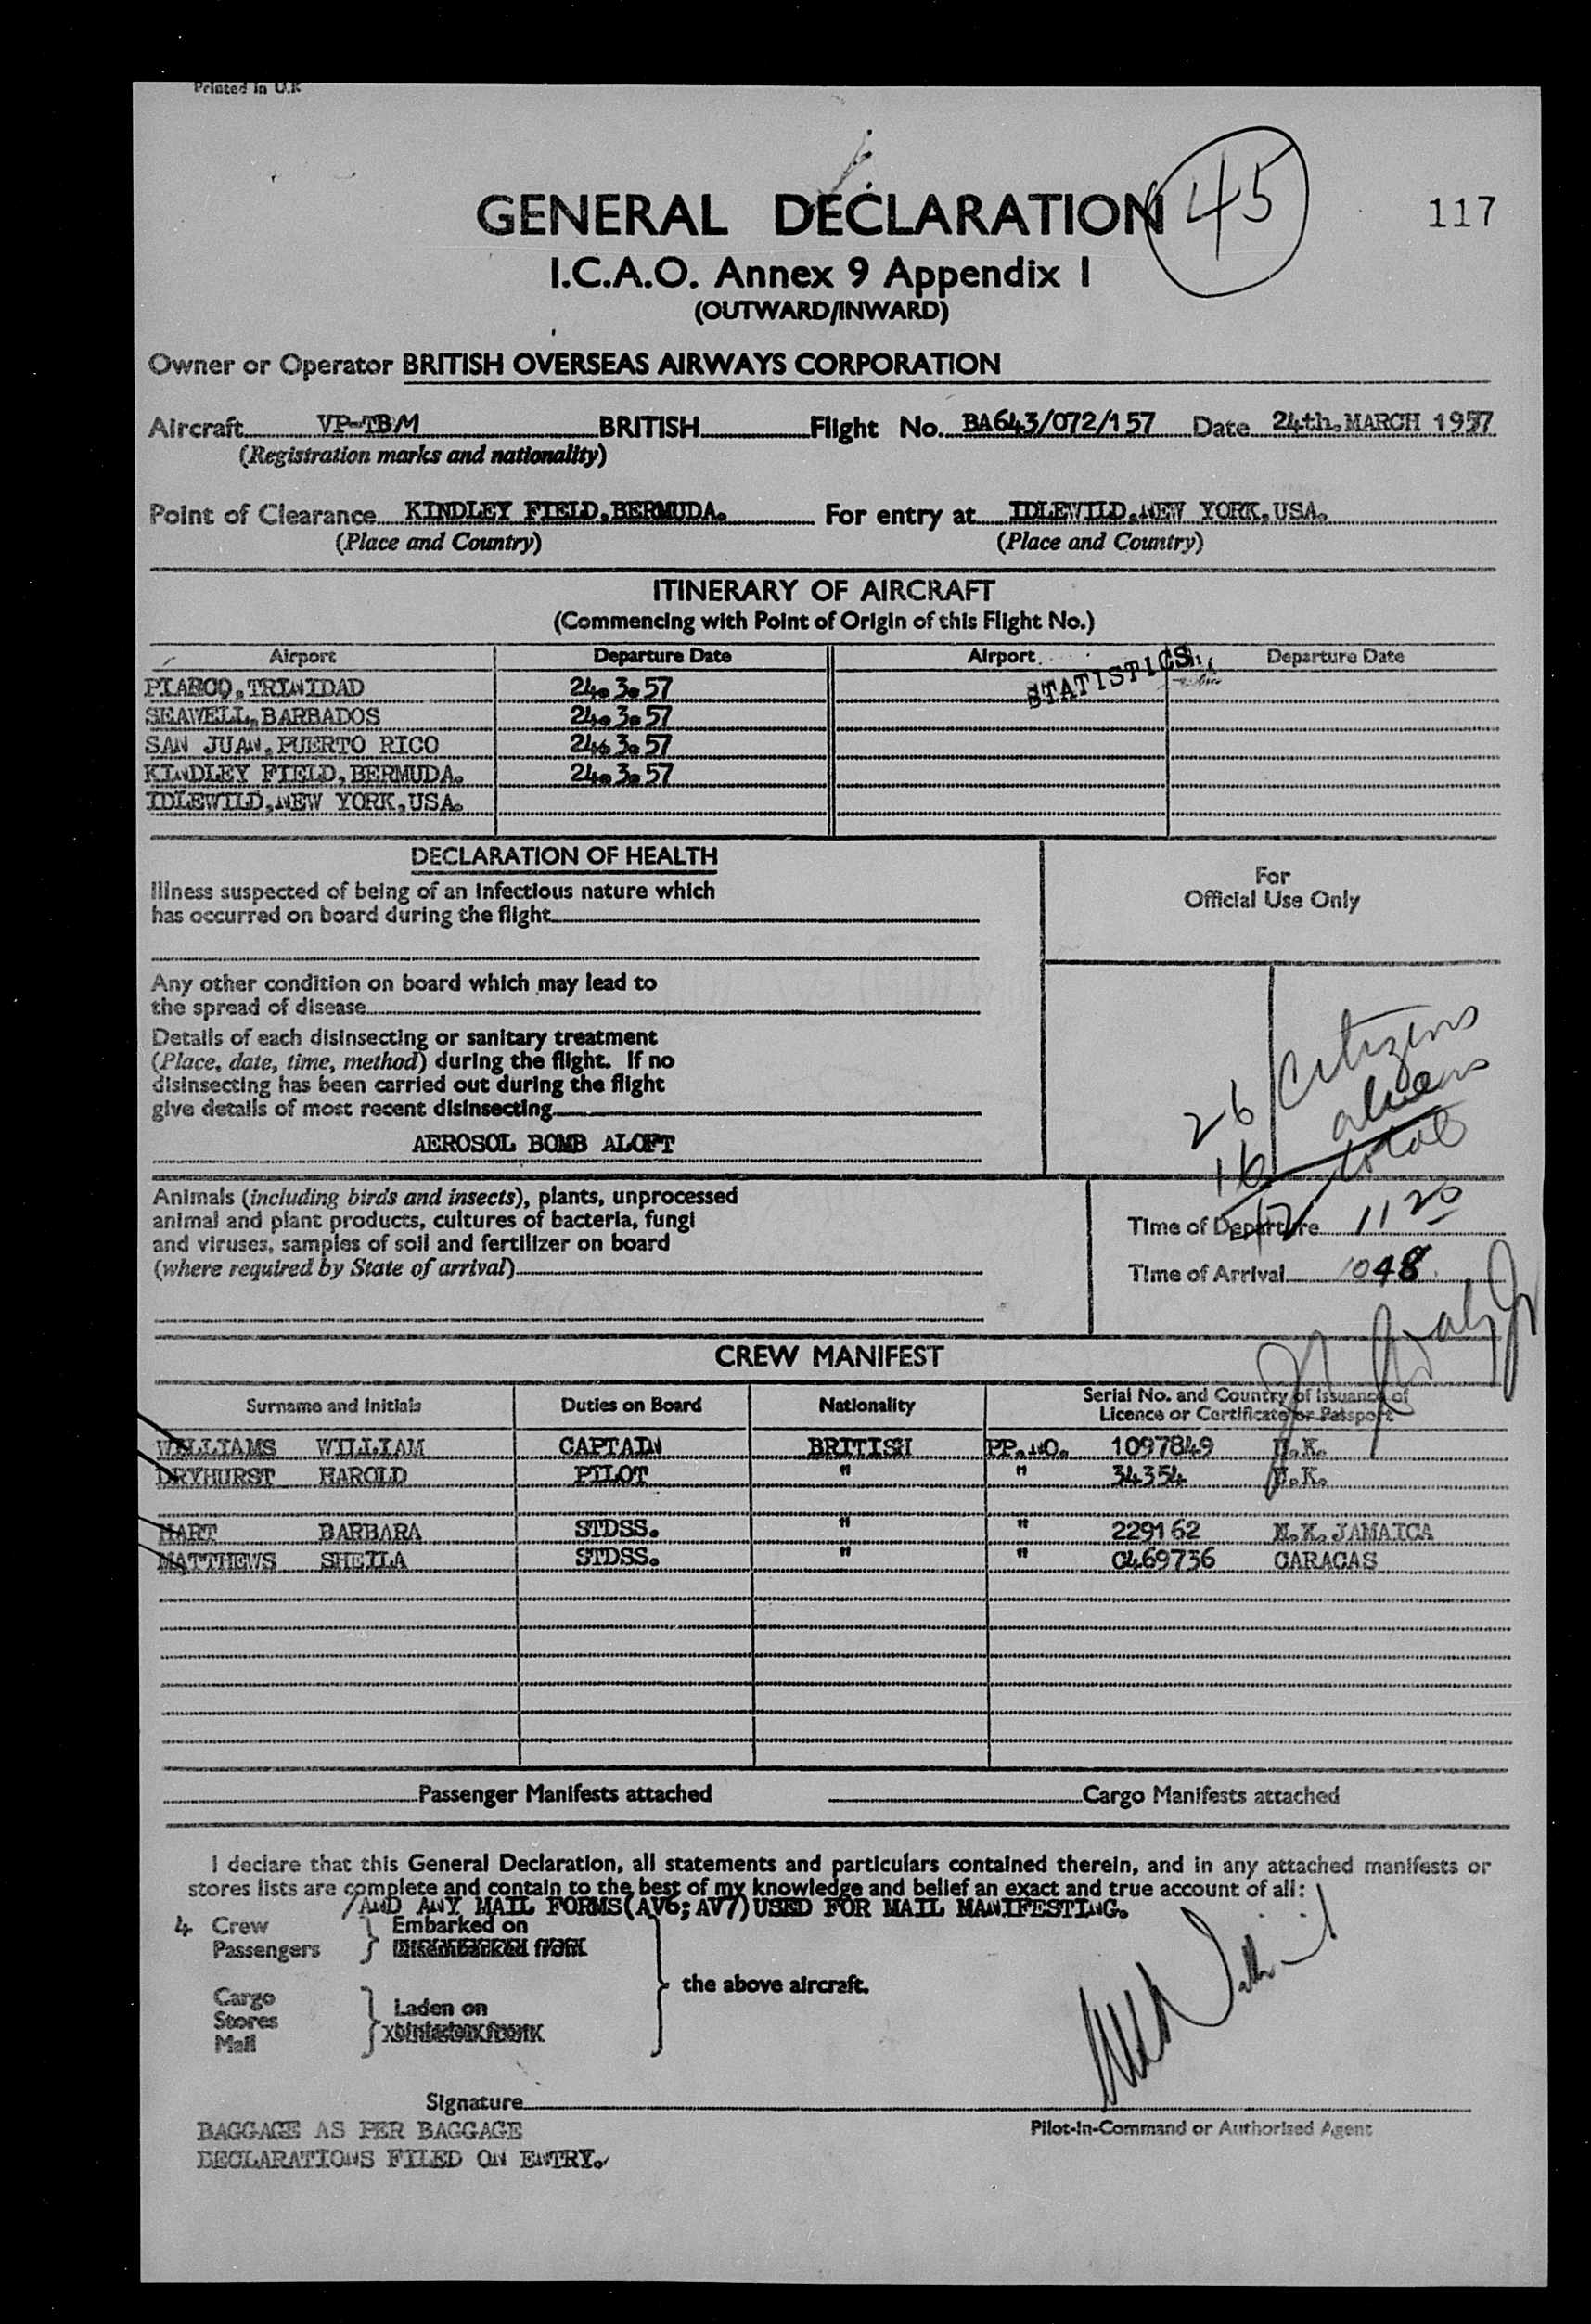 Printed in U.K
45
117
GENERAL DECLARATION
I.C.A.O. Annex 9 Appendix 1
(OUTWARD/INWARD)
Owner or Operator BRITISH OVERSEAS AIRWAYS CORPORATION
Aircraft VP-TBM BRITISH Flight No. BA643/072/157 Date 24th.MARCH 1957
(Registration marks and nationality)
Point of Clearance KINDLEY FIELD,BERMUDA. For entry at IDLEWILD,NEW YORK,USA.
(Place and Country) (Place and Country)
ITINERARY OF AIRCRAFT
(Commencing with Point of Origin of this Flight No.)
Airport Departure Date Airport Departure Date
STATISTICS
PIARCO,TRINIDAD 24.3.57
SEAWELL,BARBADOS 24.3.57
SAN JUAN,PUERTO RICO 24.3.57
KINDLEY FIELD,BERMUDA. 24.3.57
IDLEWILD,NEW YORK,USA.
DECLARATION OF HEALTH
Illness suspected of being of an infectious nature which
has occurred on board during the flight
For
Official Use Only
Any other condition on board which may lead to
the spread of disease
Details of each disinsecting or sanitary treatment
(Place, date, time, method) during the flight. If no
disinsecting has been carried out during the flight
give details of most recent disinsecting
AEROSOL BOMB ALOFT
26 citizens
16 aliens
42 total
Animals (including birds and insects), plants, unprocessed
animal and plant products, cultures of bacteria, fungi
and viruses, samples of soil and fertilizer on board
(where required by State of arrival)
Time of Departure 11 20
Time of Arrival 1048
CREW MANIFEST
Surname and Initials Duties on Board Nationality Serial No. and Country of Issuance of
Licence or Certificate or Passport
WILLIAMS WILLIAM CAPTAIN BRITISH PP.NO. 1097849 U.K.
DRYHURST HAROLD PILOT " " 34354 U.K.
HART BARBARA STDSS. " " 229162 N.K.JAMAICA
MATTHEWS SHEILA STDSS. " " C469736 CARACAS
Passenger Manifests attached Cargo Manifests attached
I declare that this General Declaration, all statements and particulars contained therein, and in any attached manifests or
stores lists are complete and contain to the best of my knowledge and belief an exact and true account of all:
/AND ANY MAIL FORMS(AV6;AV7)USED FOR MAIL MANIFESTING.
4 Crew Embarked on
Passengers Disembarked from
the above aircraft.
Cargo
Stores Laden on
Mail
Signature
BAGGAGE AS PER BAGGAGE
DECLARATIONS FILED ON ENTRY.
Pilot-in-Command or Authorised Agent